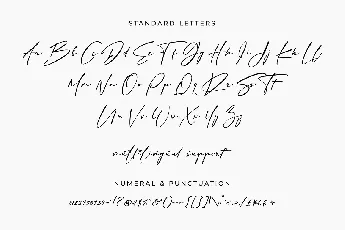 STANDARD LETTERS
Aa Bb Cc Dd Ee Ff Gg Hh Ii Jj Kk Ll
Mm Nn Oo Pp Qq Rr Ss Tt
Uu Vv Ww Xx Yy Zz
multilingual support
NUMERAL & PUNCTUATION